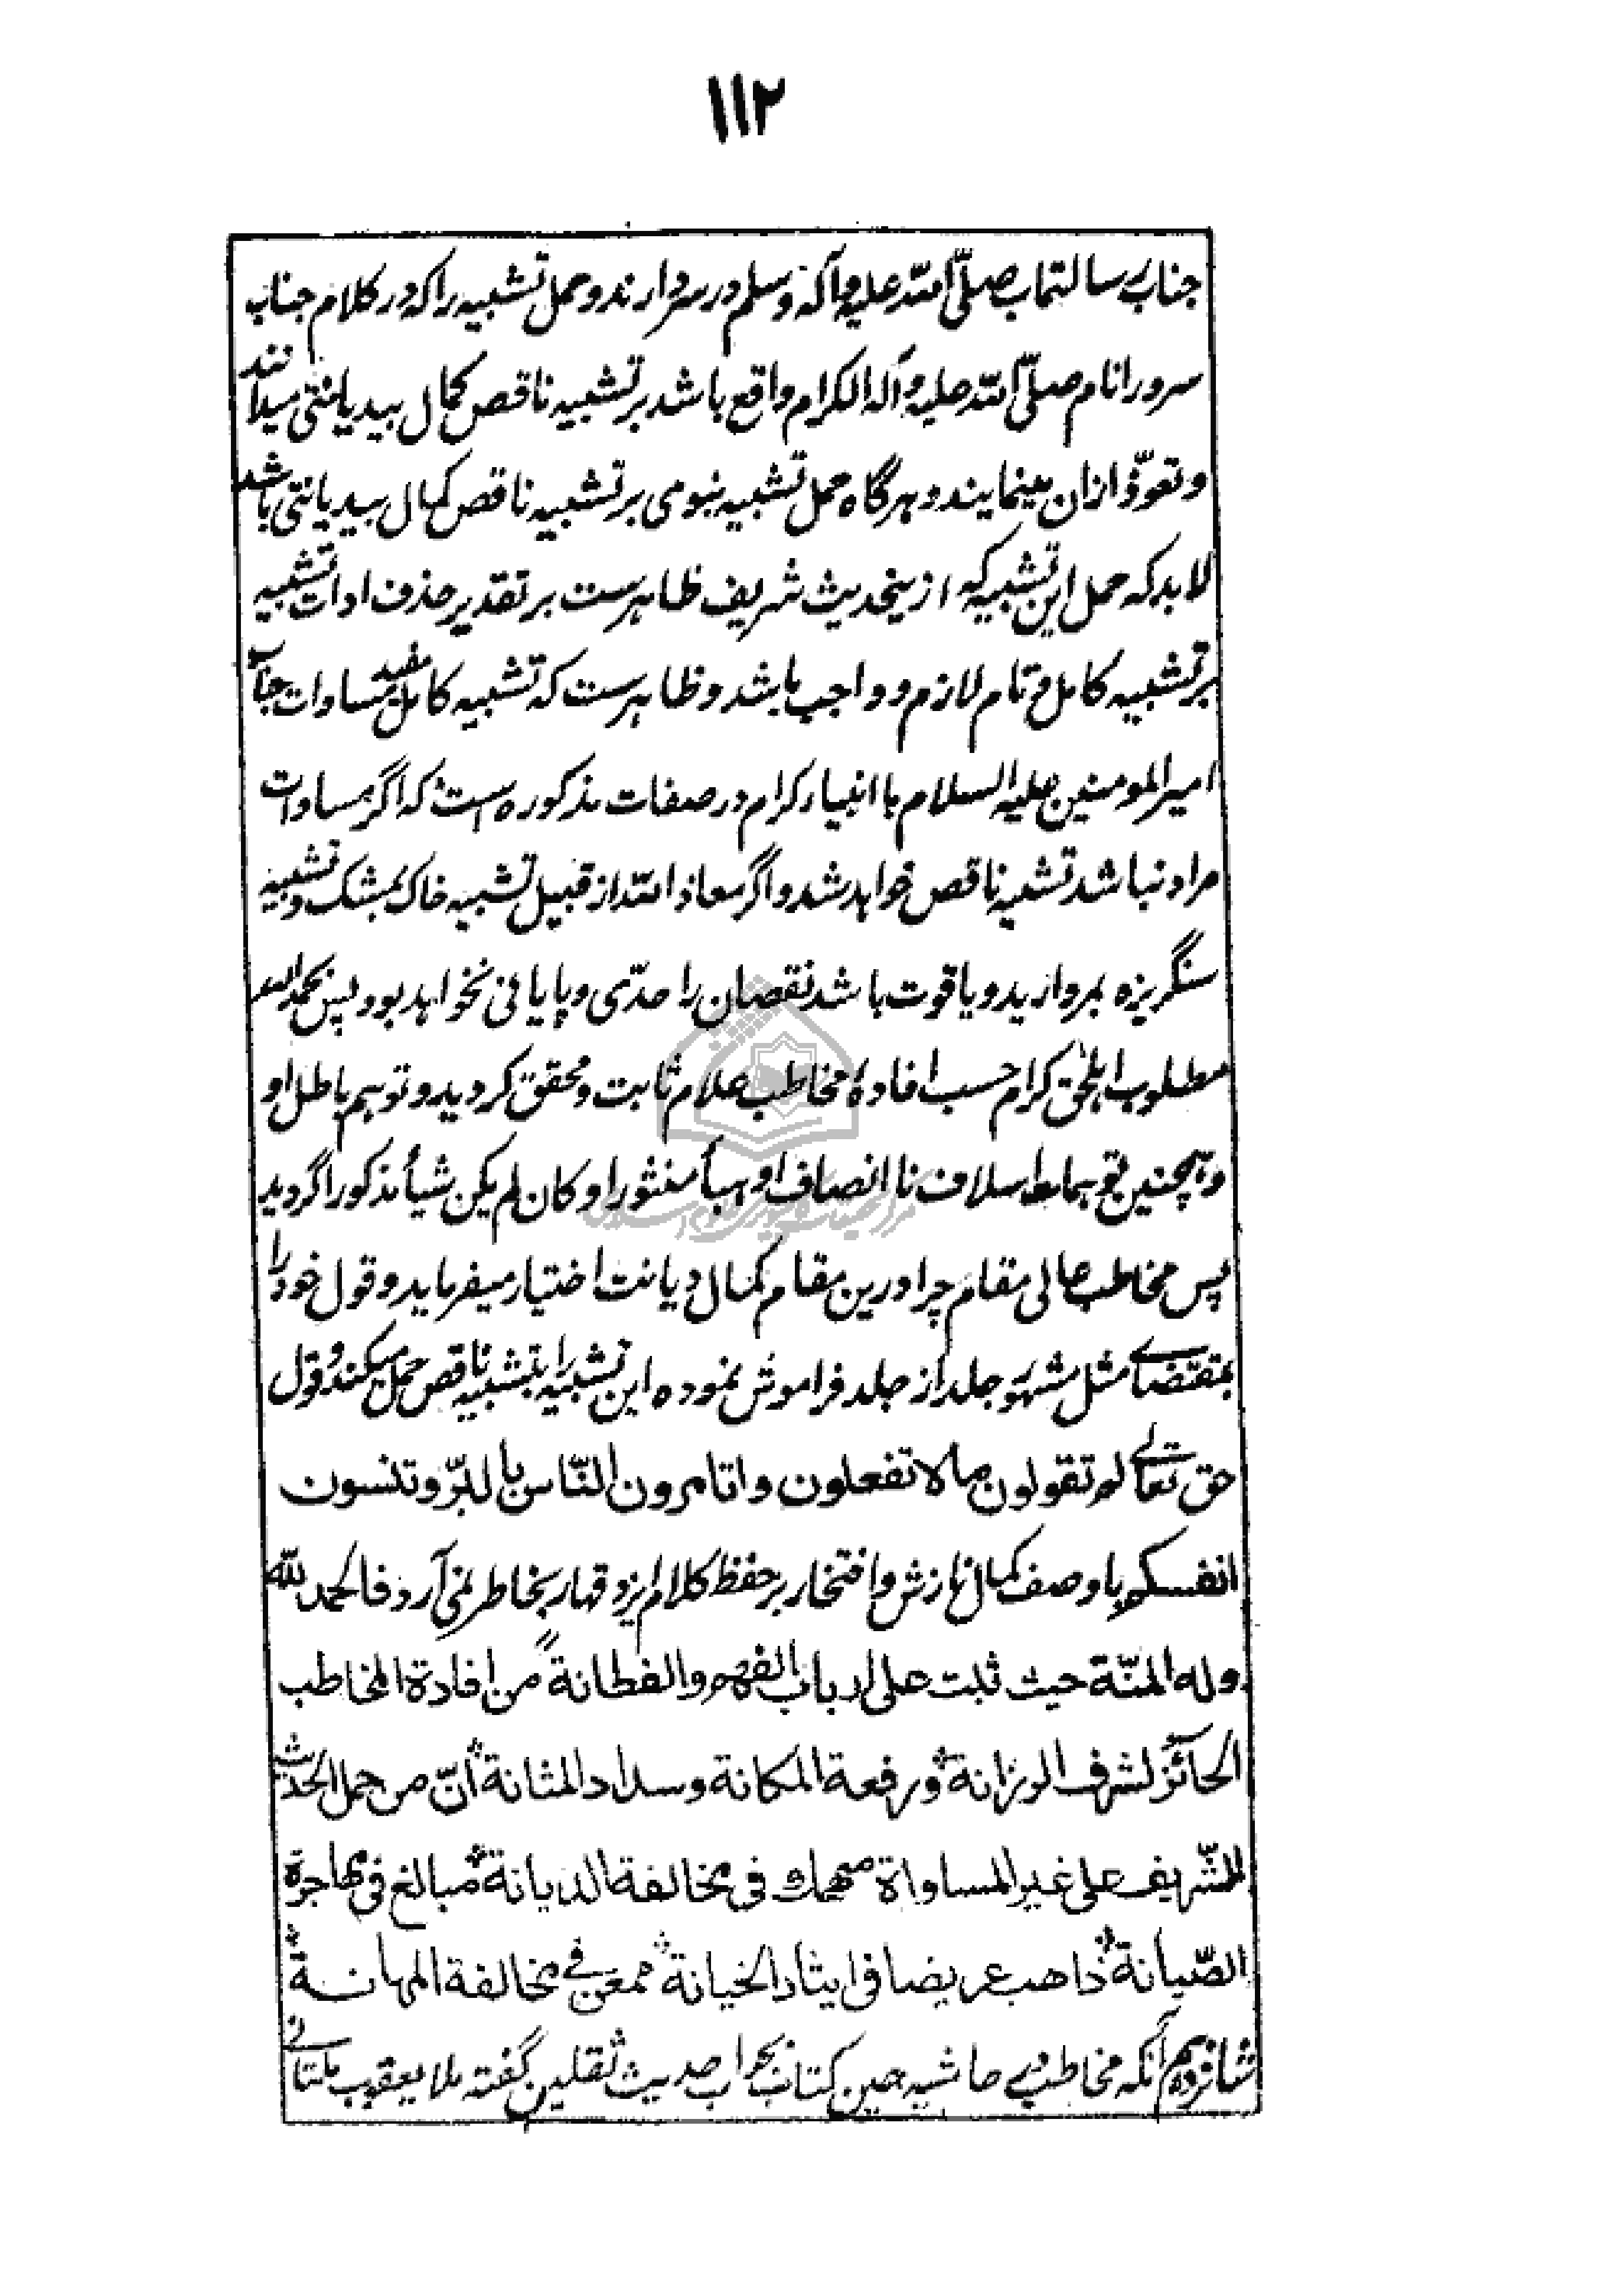 ۱۱۲
جناب رسالتماب صلّی اللّه علیه و آله وسلم در سر دارند و حمل تشبیه را که در کلام جناب
سرور انام صلّی اللّه علیه و آله الکرام واقع باشد بر تشبیه ناقص کمال بیدیانتی میدانند
و تعوّذ ازان مینمایند و هرگاه حمل تشبیه نبوی بر تشبیه ناقص کمال بیدیانتی باشد
لابد که حمل این تشبیه که ازینحدیث شریف ظاهرست بر تقدیر حذف ادات تشبیه
بر تشبیه کامل و تام لازم و واجب باشد و ظاهرست که تشبیه کامل مفید مساوات جناب
امیرالمومنین علیه السلام با انبیاء کرام در صفات مذکوره است که اگر مساوات
مراد نباشد تشبیه ناقص خواهد شد و اگر معاذ اللّه از قبیل تشبیه خاک بمشک و تشبیه
سنگریزه بمروارید و یاقوت باشد نقصان را حدّی و پایانی نخواهد بود پس بحمد اللّه
مطلوب اهلحق کرام حسب افادهٔ مخاطب علام ثابت و محقق گردید و توهم باطل او
و همچنین توهمات اسلاف ناانصاف او هباً منثورا و کان لم یکن شیأً مذکورا گردید
پس مخاطب عالی مقام چرا درین مقام کمال دیانت اختیار میفرماید و قول خود را
بمقتضای مثل مشهور جلد از جلد فراموش نموده این تشبیه را بتشبیه ناقص حمل میکند و قول
حق تعالی لم تقولون ما لا تفعلون و اتامرون النّاس بالبرّ و تنسون
انفسکم با وصف کمال نازش و افتخار بر حفظ کلام ایزد قهار بخاطر نمی آرد فالحمد للّه
وله المنّة حیث ثبت علی ارباب الفهم والفطانة من افادة المخاطب
الحائز لشرف الرزانة ورفعة المکانة وسداد المثانة أنّ من حمل الحدیث
الشّریف علی غیر المساواة منهمك فی مخالفة الدیانة مبالغ فی مهاجرة
الصّیانة ذاهب عریضا فی ایثار الخیانة ممعن فی مخالفة المهانة
شانزدهم آنکه مخاطب در حاشیه همین کتاب بجواب حدیث ثقلین گفته ملا یعقوب ملتانی